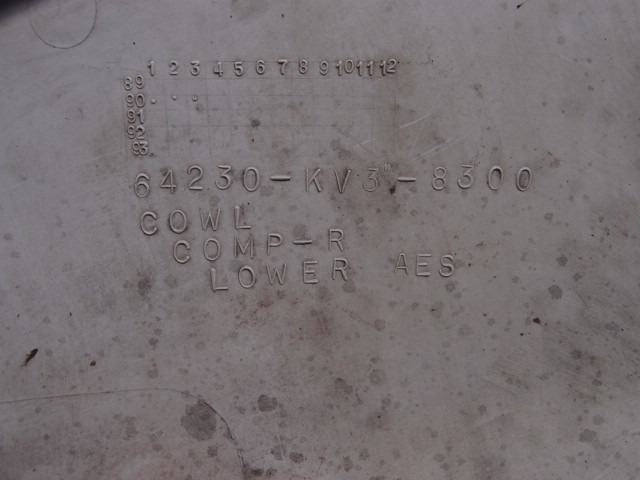 1 2 3 4 5 6 7 8 9 10 11 12
89
90
91
92
93
64230-KV3-8300
COWL
COMP-R
LOWER AES